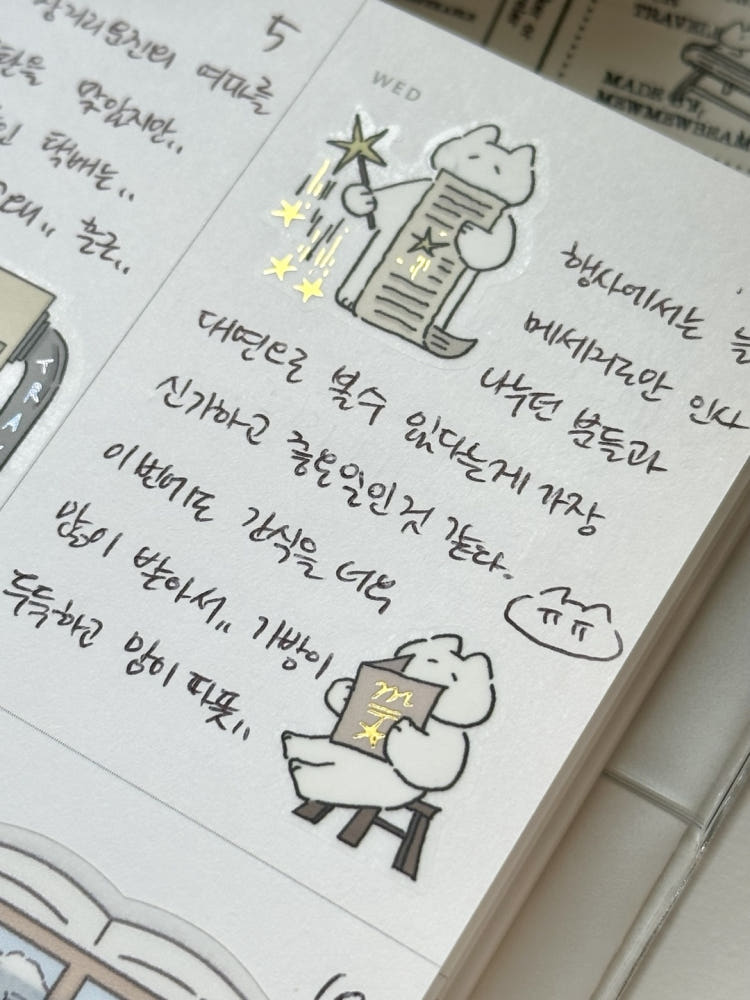 5
장거리운전의 여파를
맞았지만..
택배는..
흘근..
WED
행사에서는 늘
메세지로만 인사
나누던 분들과
대면으로 볼수 있다는게 가장
신기하고 중요한일인것 같다.
이번에도 간식을 너무
많이 받아서.. 가방이
두둑하고 맘이 따뜻..
TRAVEL
MADE BY,
MEWMEWBEAM
TRA